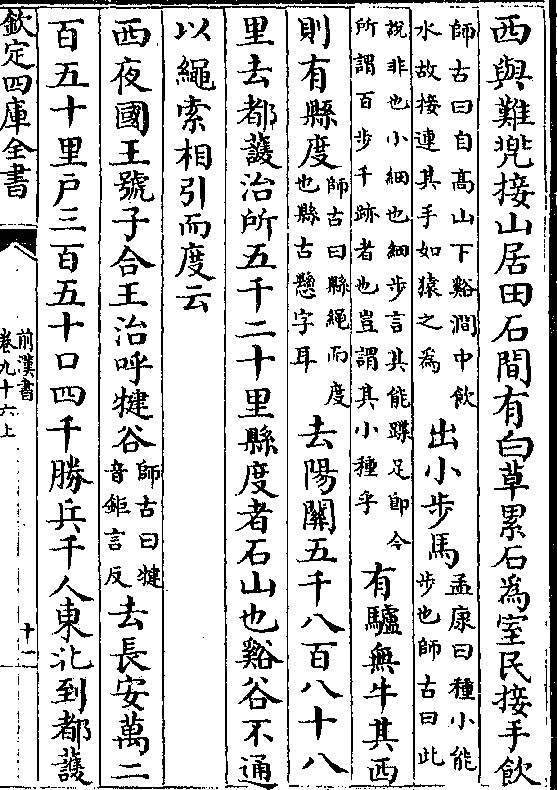 西與難兠接山居田石間有白草累石為室民接手飲
師古曰自髙山下谿澗中飲水故接連其手如猿之為
出小步馬
孟康曰種小能步也師古曰此說非也小細也細步言其能蹀足即今所謂百步千跡者也豈謂其小種乎
有驢無牛其西
則有縣度
師古曰縣繩而度也縣古懸字耳
去陽闗五千八百八十八
里去都䕶治所五千二十里縣度者石山也谿谷不通
以繩索相引而度云
西夜國王號子合王治呼犍谷
師古曰犍音鉅言反
去長安萬二
百五十里戸三百五十口四千勝兵千人東北到都䕶
欽定四庫全書
前漢書
卷九十六上
十一